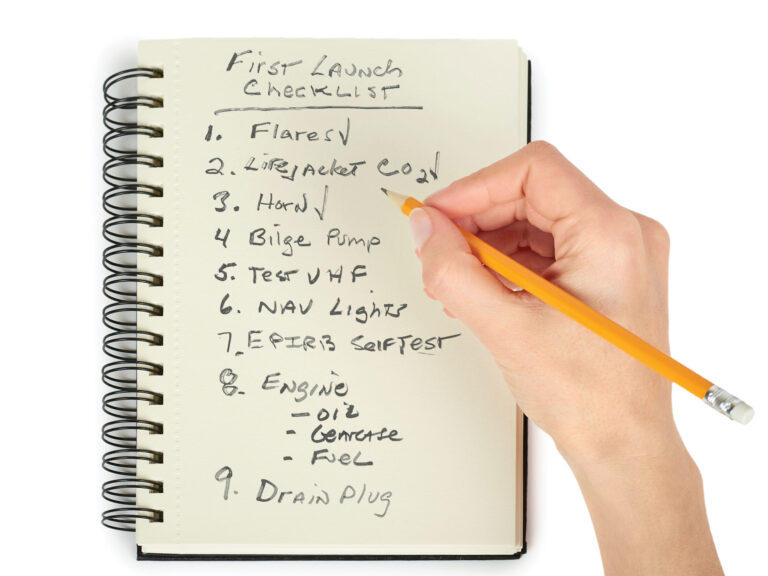 First Launch
Checklist
1. Flares √
2. Lifejacket CO2 √
3. Horn √
4 Bilge Pump
5. Test VHF
6. NAV Lights
7. EPIRB Self Test
8. Engine
- Oil
- Gearcase
- Fuel
9. Drain Plug